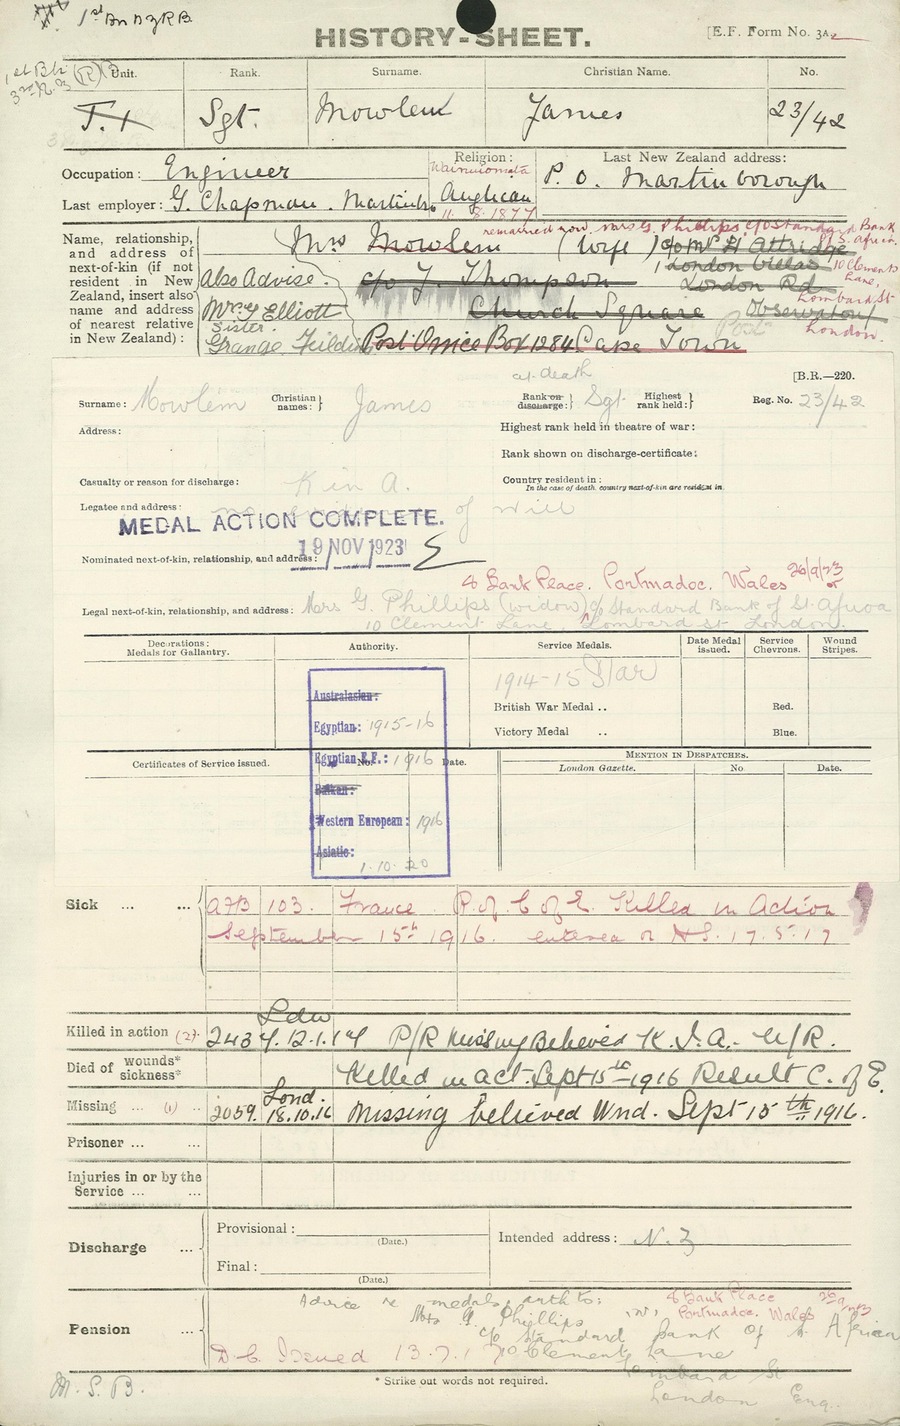 1st Bn NZRB
HISTORY-SHEET.
[E.F. Form No. 3A.
1st Bn (R)
3rd N.Z.
Unit. Rank. Surname. Christian Name. No.
Sgt. Mowlem James 23/42
Occupation: Engineer
Religion: Anglican
Wainuiomata
11. 8. 1877
Last New Zealand address: P. O. Martinborough
Last employer: G. Chapman. Martinb.
Name, relationship, and address of next-of-kin (if not resident in New Zealand, insert also name and address of nearest relative in New Zealand):
remarried now Mrs G. Phillips, c/o Standard Bank of S. Africa.
10 Clements Lane,
Lombard St
London.
Mrs Mowlem (Wife) c/o Mr H Attridge
London Villas
London Rd
Observatory
c/o J. Thompson
Church Square
Post Office Box 1284 Cape Town
Also Advise.
Mrs J Elliott
Sister.
Grange, Feilding
[B.R.—220.
Surname: Mowlem Christian names: James
at death
Rank on discharge: Sgt. Highest rank held: Reg. No. 23/42
Address:
Highest rank held in theatre of war:
Rank shown on discharge-certificate:
Casualty or reason for discharge: K in A.
Country resident in:
In the case of death, country next-of-kin are resident in.
Legatee and address: no evidence of Will
MEDAL ACTION COMPLETE.
19 NOV 1923
Nominated next-of-kin, relationship, and address:
8 Bank Place. Portmadoc. Wales 26/9/23
Legal next-of-kin, relationship, and address: Mrs G. Phillips (widow) c/o Standard Bank of St. Africa
10 Clement Lane, Lombard St London.
Decorations: Medals for Gallantry. Authority. Service Medals. Date Medal issued. Service Chevrons. Wound Stripes.
1914-15 Star
British War Medal .. Red.
Victory Medal .. Blue.
Australasian:
Egyptian: 1915-16
Egyptian E.F.: 1916
Balkan:
Western European: 1916
Asiatic:
1-10-20
Certificates of Service issued. No. Date.
MENTION IN DESPATCHES.
London Gazette. No Date.
Sick ... ... AFB 103. France. R. of C of E. Killed in Action
September 15th 1916. entered on HS. 17.5.17
Killed in action (2) 2434. Ldn 12.1.17 P/R Missing Believed K.I.A. - N/R.
Died of wounds* sickness* Killed in act. Sept 15th 1916 Result C. of E.
Missing ... (1) ... 2059. Lond. 18.10.16 Missing believed Wnd. Sept 15th 1916.
Prisoner ... ...
Injuries in or by the Service ... ...
Discharge ... Provisional: (Date.) Intended address: N.Z
Final: (Date.)
Pension ...
Advice re medals, etc to:
Mrs G. Phillips (W)
c/o Standard Bank of S. African
10 Clements Lane
Lombard St
London Eng.
8 Bank Place
Portmadoc. Wales
D.C. Issued 13.7.
* Strike out words not required.
M. S. B.